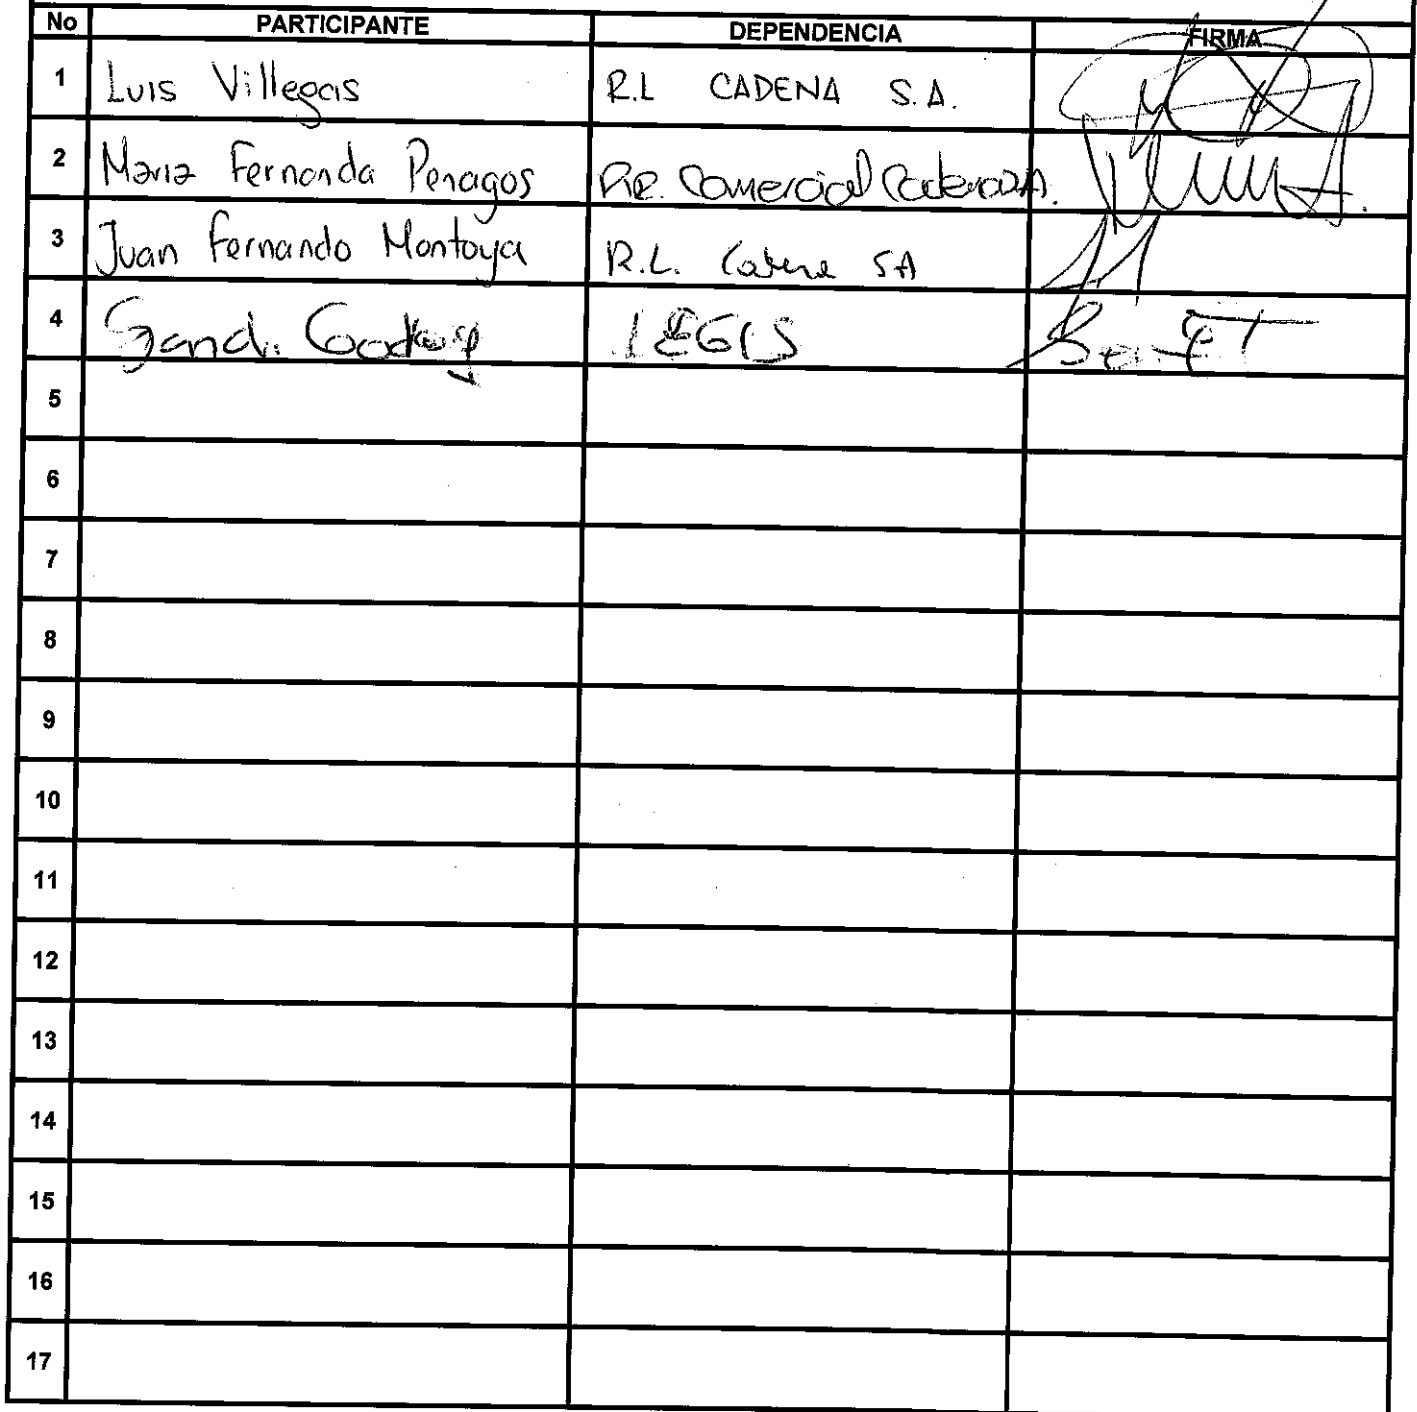 No PARTICIPANTE DEPENDENCIA FIRMA
1 Luis Villegas R.L CADENA S.A.
2 Maria Fernanda Penagos Comercial Cadena S.A.
3 Juan Fernando Montoya R.L. Cadena SA
4 LEGIS
5
6
7
8
9
10
11
12
13
14
15
16
17